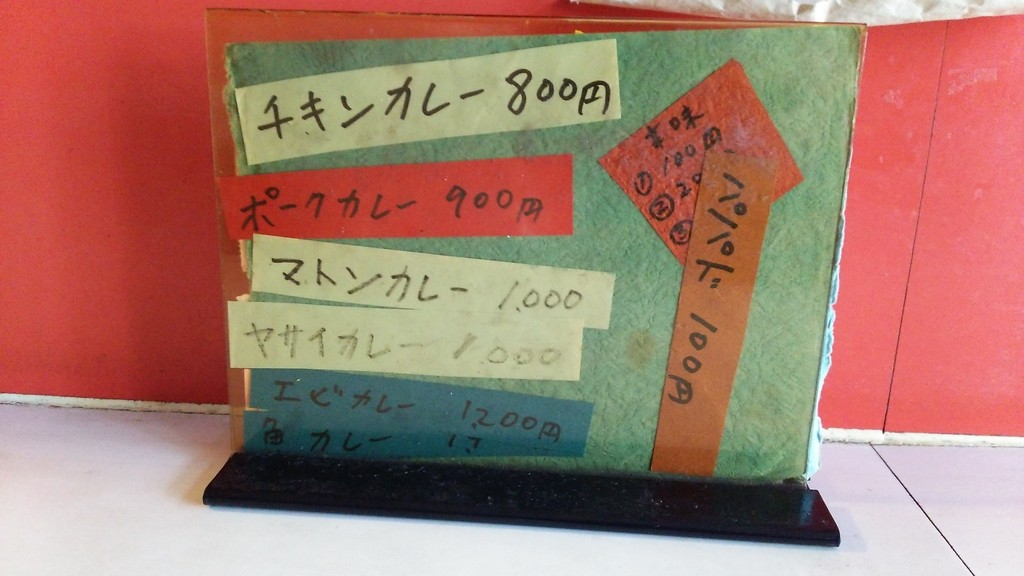 チキンカレー 800円
ポークカレー 900円
マトンカレー 1,000
ヤサイカレー 1,000
エビカレー 1,200円
魚カレー
辛味
100円
①
② 20
③
パパド 100円